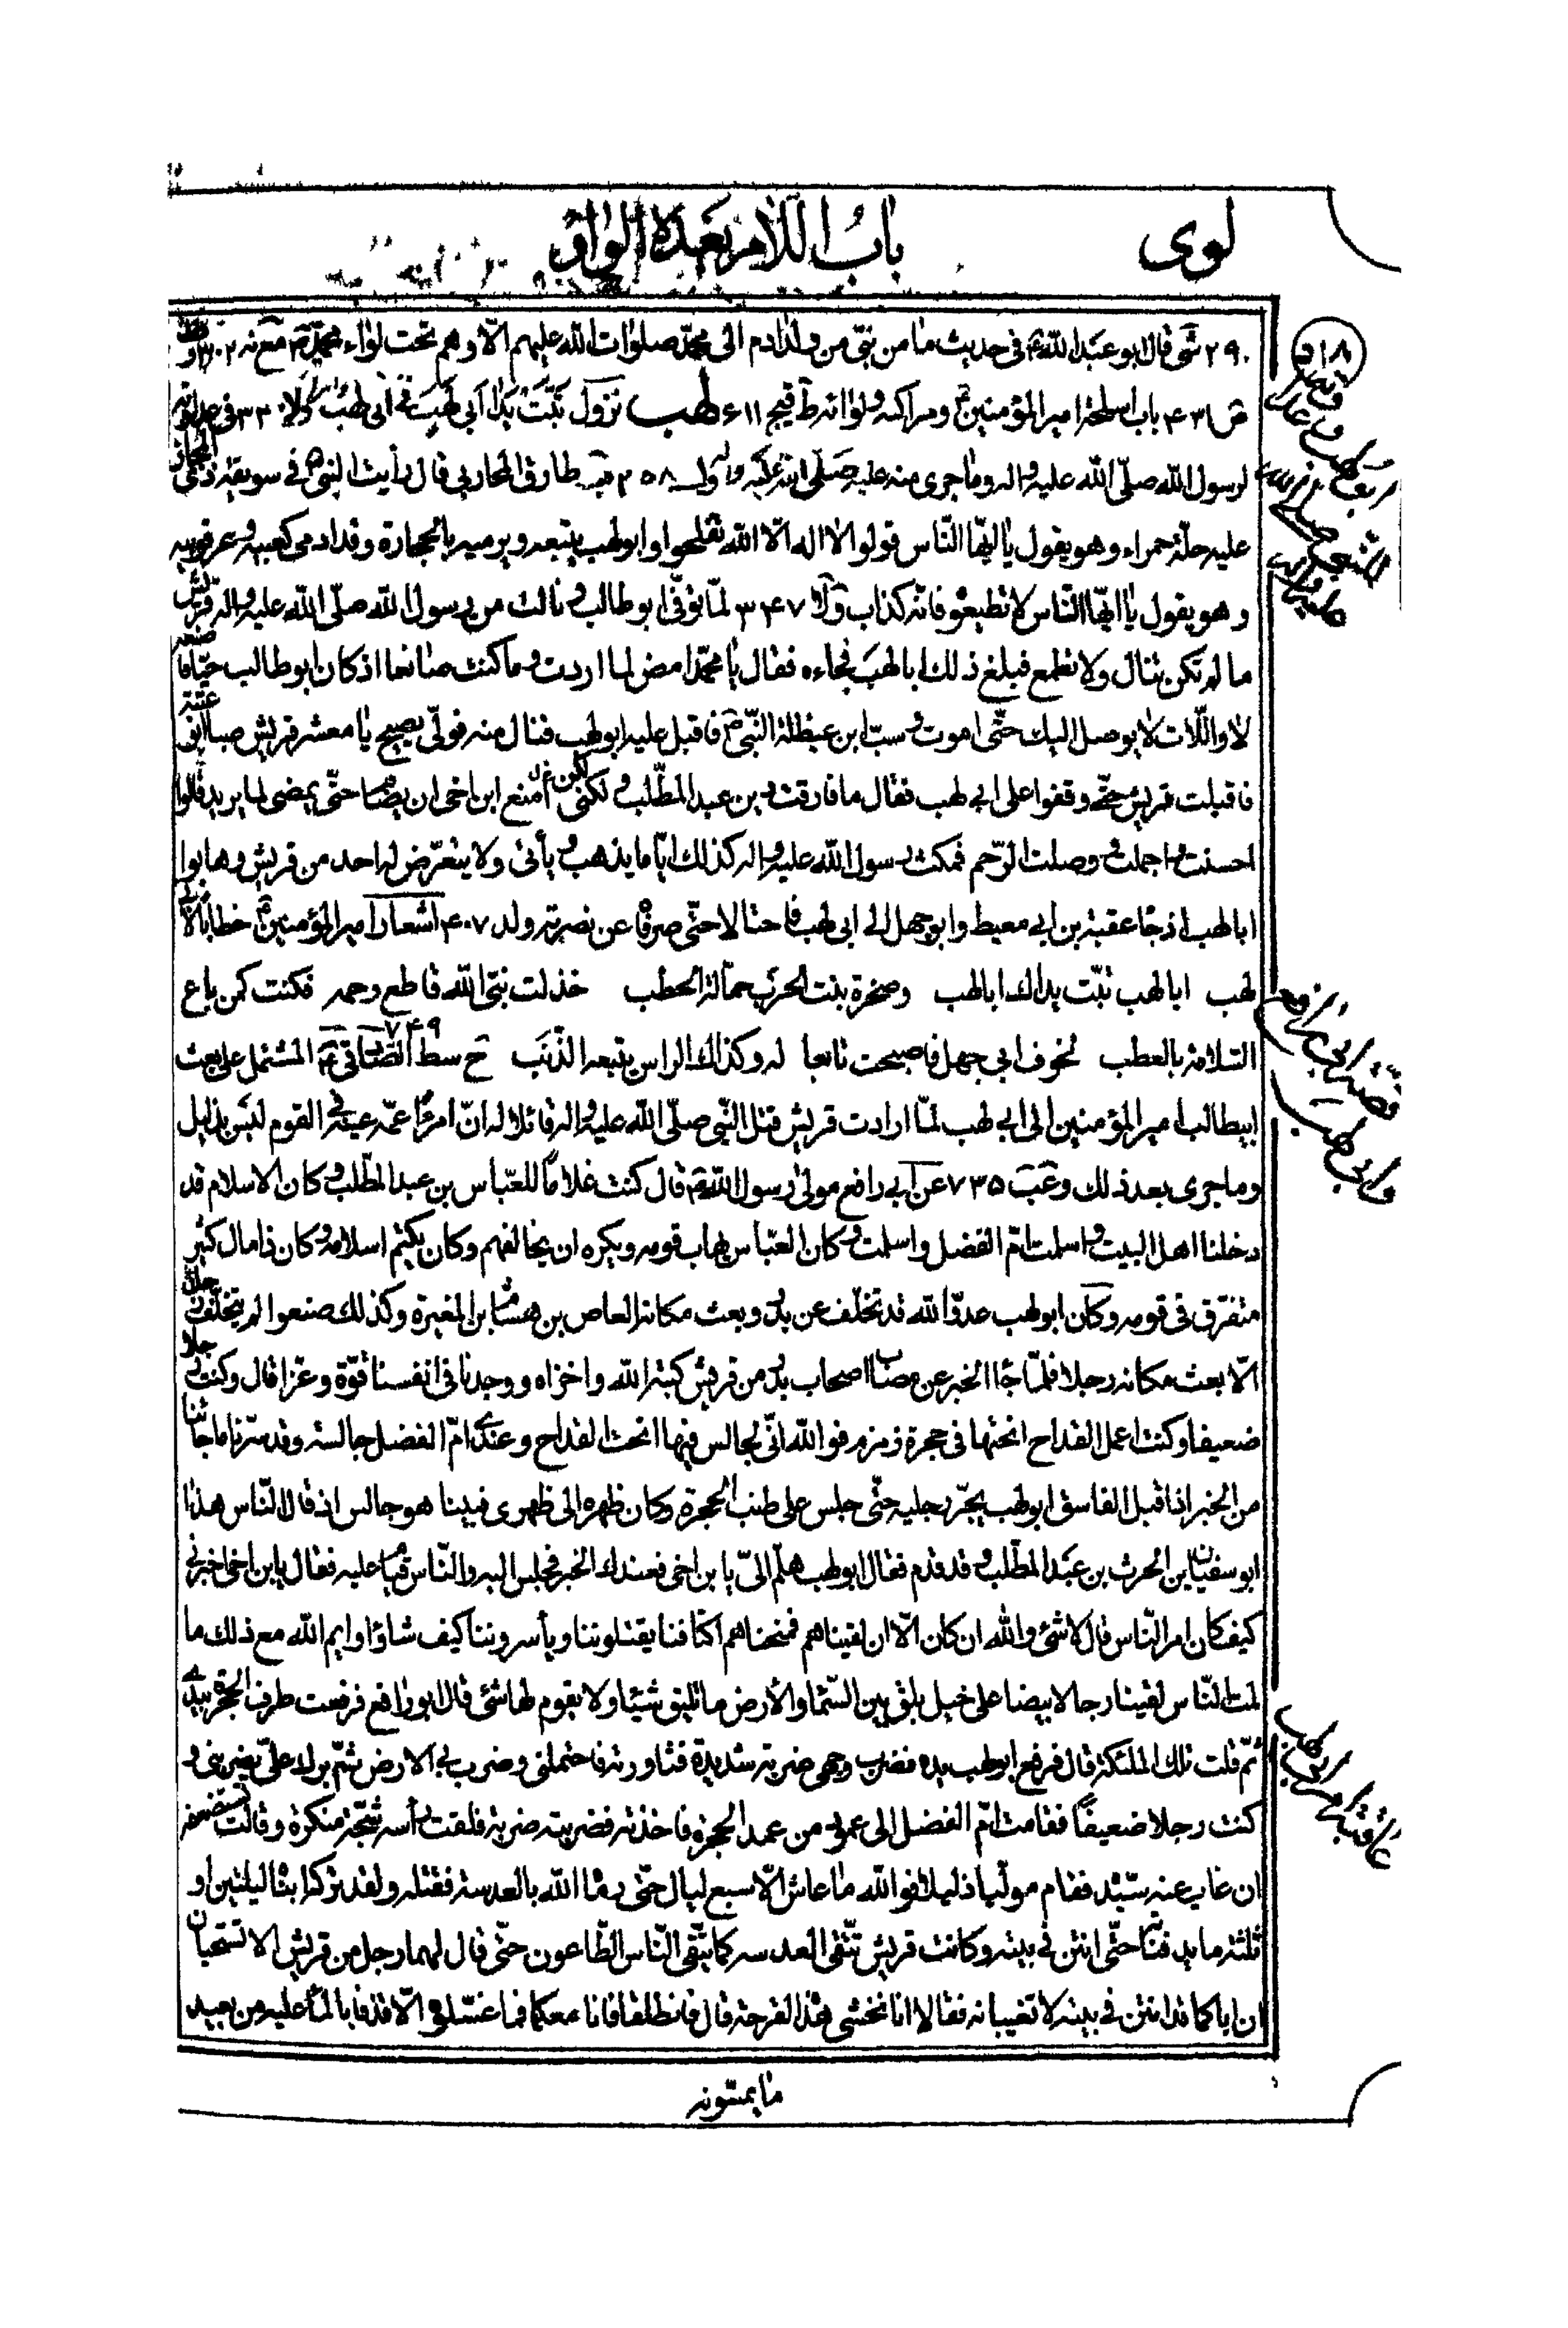 لوى باب اللام بعده الواو
٥١٨
٢٩٠ شى قال ابو عبد الله ع فى حديث ما من نبى من ولد ادم الى محمد صلوات الله عليهم الا وهم تحت لواء محمد ص
باب اسلحة امير المؤمنين ع ومراكبه ولوائه ط قيج ٦١١ لهب نزول تبت يدا ابى لهب فى ابى لهب
لرسول الله صلى الله عليه واله وما جرى منه عليه صلى الله عليه واله ٣٥٨ طارق المحاربى قال رأيت النبى ص فى سويقة ذى المجاز
عليه حلة حمراء وهو يقول يا ايها الناس قولوا لا اله الا الله تفلحوا وابو لهب يتبعه ويرميه بالحجارة وقد ادمى كعبيه وعرقوبيه
وهو يقول يا ايها الناس لا تطيعوه فانه كذاب ولا ٣٤٧ لما توفى ابو طالب و نالت من رسول الله صلى الله عليه واله قريش
ما لم تكن تنال ولا تطمع فبلغ ذلك ابا لهب فجاءه فقال يا محمد امض لما اردت وما كنت صانعا اذ كان ابو طالب حيا فاصنعه
لا واللات لا يوصل اليك حتى اموت و سب ابن غيطلة النبى ص فاقبل عليه ابو لهب فنال منه فولى يصيح يا معشر قريش صبا ابو عتبة
فاقبلت قريش حتى وقفوا على ابى لهب فقال ما فارقت دين عبد المطلب ولكنى امنع ابن اخى ان يضام حتى يمضى لما يريد قالوا
احسنت واجملت ووصلت الرحم فمكث رسول الله عليه واله كذلك اياما يذهب ويأتى ولا يتعرض له احد من قريش وهابوا
ابا لهب اذ جاء عقبة بن ابى معيط وابو جهل الى ابى لهب فاحتالا حتى صرفاه عن نصرته ولد ٤٠٧ اشعار امير المؤمنين ع خطابا لابى
لهب ابا لهب تبت يداك ابا لهب وصخرة بنت الحرب حمالة الحطب خذلت نبى الله قاطع رحمه فكنت كمن باع
السلامة بالعطب لخوف ابى جهل فاصبحت تابعا له وكذاك الراس يتبعه الذنب ح سط ٧٤٩ الصادقى ع المشتمل على بعث
ابيطالب امير المؤمنين الى ابى لهب لما ارادت قريش قتل النبى صلى الله عليه واله قائلا له ان امرءا عمه عينه فى القوم ليس بذليل
وما جرى بعد ذلك وعب ٧٣٥ عن ابى رافع مولى رسول الله ص قال كنت غلاما للعباس بن عبد المطلب وكان الاسلام قد
دخلنا اهل البيت واسلمت ام الفضل واسلمت وكان العباس يهاب قومه ويكره ان يخالفهم وكان يكتم اسلامه وكان ذا مال كثير
متفرق فى قومه وكان ابو لهب عدو الله قد تخلف عن بدر وبعث مكانه العاص بن هشام بن المغيرة وكذلك صنعوا لم يتخلف رجل
الا بعث مكانه رجلا فلما جاء الخبر عن مصاب اصحاب بدر من قريش كبته الله واخزاه ووجدنا فى انفسنا قوة وعزا قال وكنت رجلا
ضعيفا وكنت اعمل القداح انحتها فى حجرة زمزم فوالله انى لجالس فيها انحت القداح وعندى ام الفضل جالسة وقد سرنا ما جائنا
من الخبر اذ اقبل الفاسق ابو لهب يجر رجليه حتى جلس على طنب الحجرة وكان ظهره الى ظهرى فبينا هو جالس اذ قال الناس هذا
ابو سفيان بن الحرث بن عبد المطلب وقد قدم فقال ابو لهب هلم الى يا بن اخى فعندك الخبر فجلس اليه والناس قيام عليه فقال يا بن اخى اخبرنى
كيف كان امر الناس قال لا شئ والله ان كان الا ان لقيناهم فمنحناهم اكتافنا يقتلوننا ويأسروننا كيف شاؤا وايم الله مع ذلك ما
لمت الناس لقينا رجالا بيضا على خيل بلق بين السماء والأرض ما تليق شيئا ولا يقوم لها شئ قال ابو رافع فرفعت طرف الحجرة بيدى
ثم قلت تلك الملئكة قال فرفع ابو لهب يده فضرب وجهى ضربة شديدة فثاورته فاحتملنى وضرب بى الارض ثم برك على يضربنى و
كنت رجلا ضعيفا فقامت ام الفضل الى عمود من عمد الحجرة فاخذته فضربته ضربة فلقت رأسه شجة منكرة وقالت تستضعفه
ان غاب عنه سيده فقام موليا ذليلا فوالله ما عاش الا سبع ليال حتى رماه الله بالعدسة فقتله ولقد تركه ابناه ليلتين او
ثلثة ما يدفناه حتى انتن فى بيته وكانت قريش تتقى العدسه كما يتقى الناس الطاعون حتى قال لهما رجل من قريش الا تستحيان
ان اباكما قد انتن فى بيته لا تغيبانه فقالا انا نخشى هذه القرحة قال فانطلقا فانا معكما فما غسلوه الا قذفا بالماء عليه من بعيد
ما يمسونه